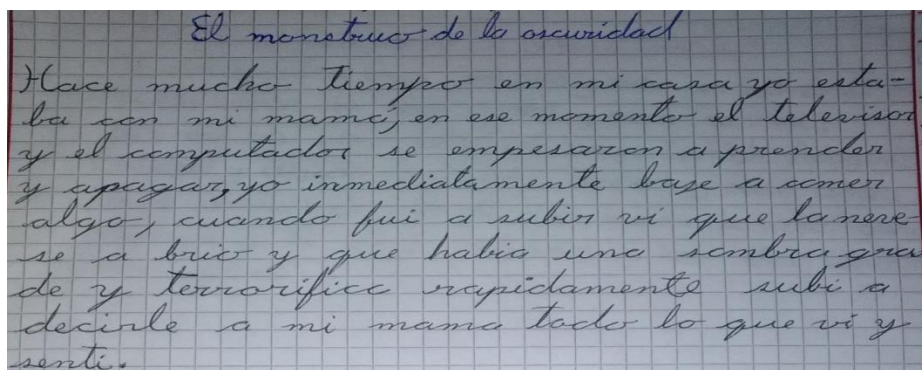 El monstruo de la oscuridad
Hace mucho tiempo en mi casa yo esta-
ba con mi mama, en ese momento el televisor
y el computador se empesaron a prender
y apagar, yo inmediatamente baje a comer
algo, cuando fui a subir vi que la neve
se a brio y que habia una sombra gra
de y terrorifica rapidamente subi a
decirle a mi mama todo lo que vi y
senti.